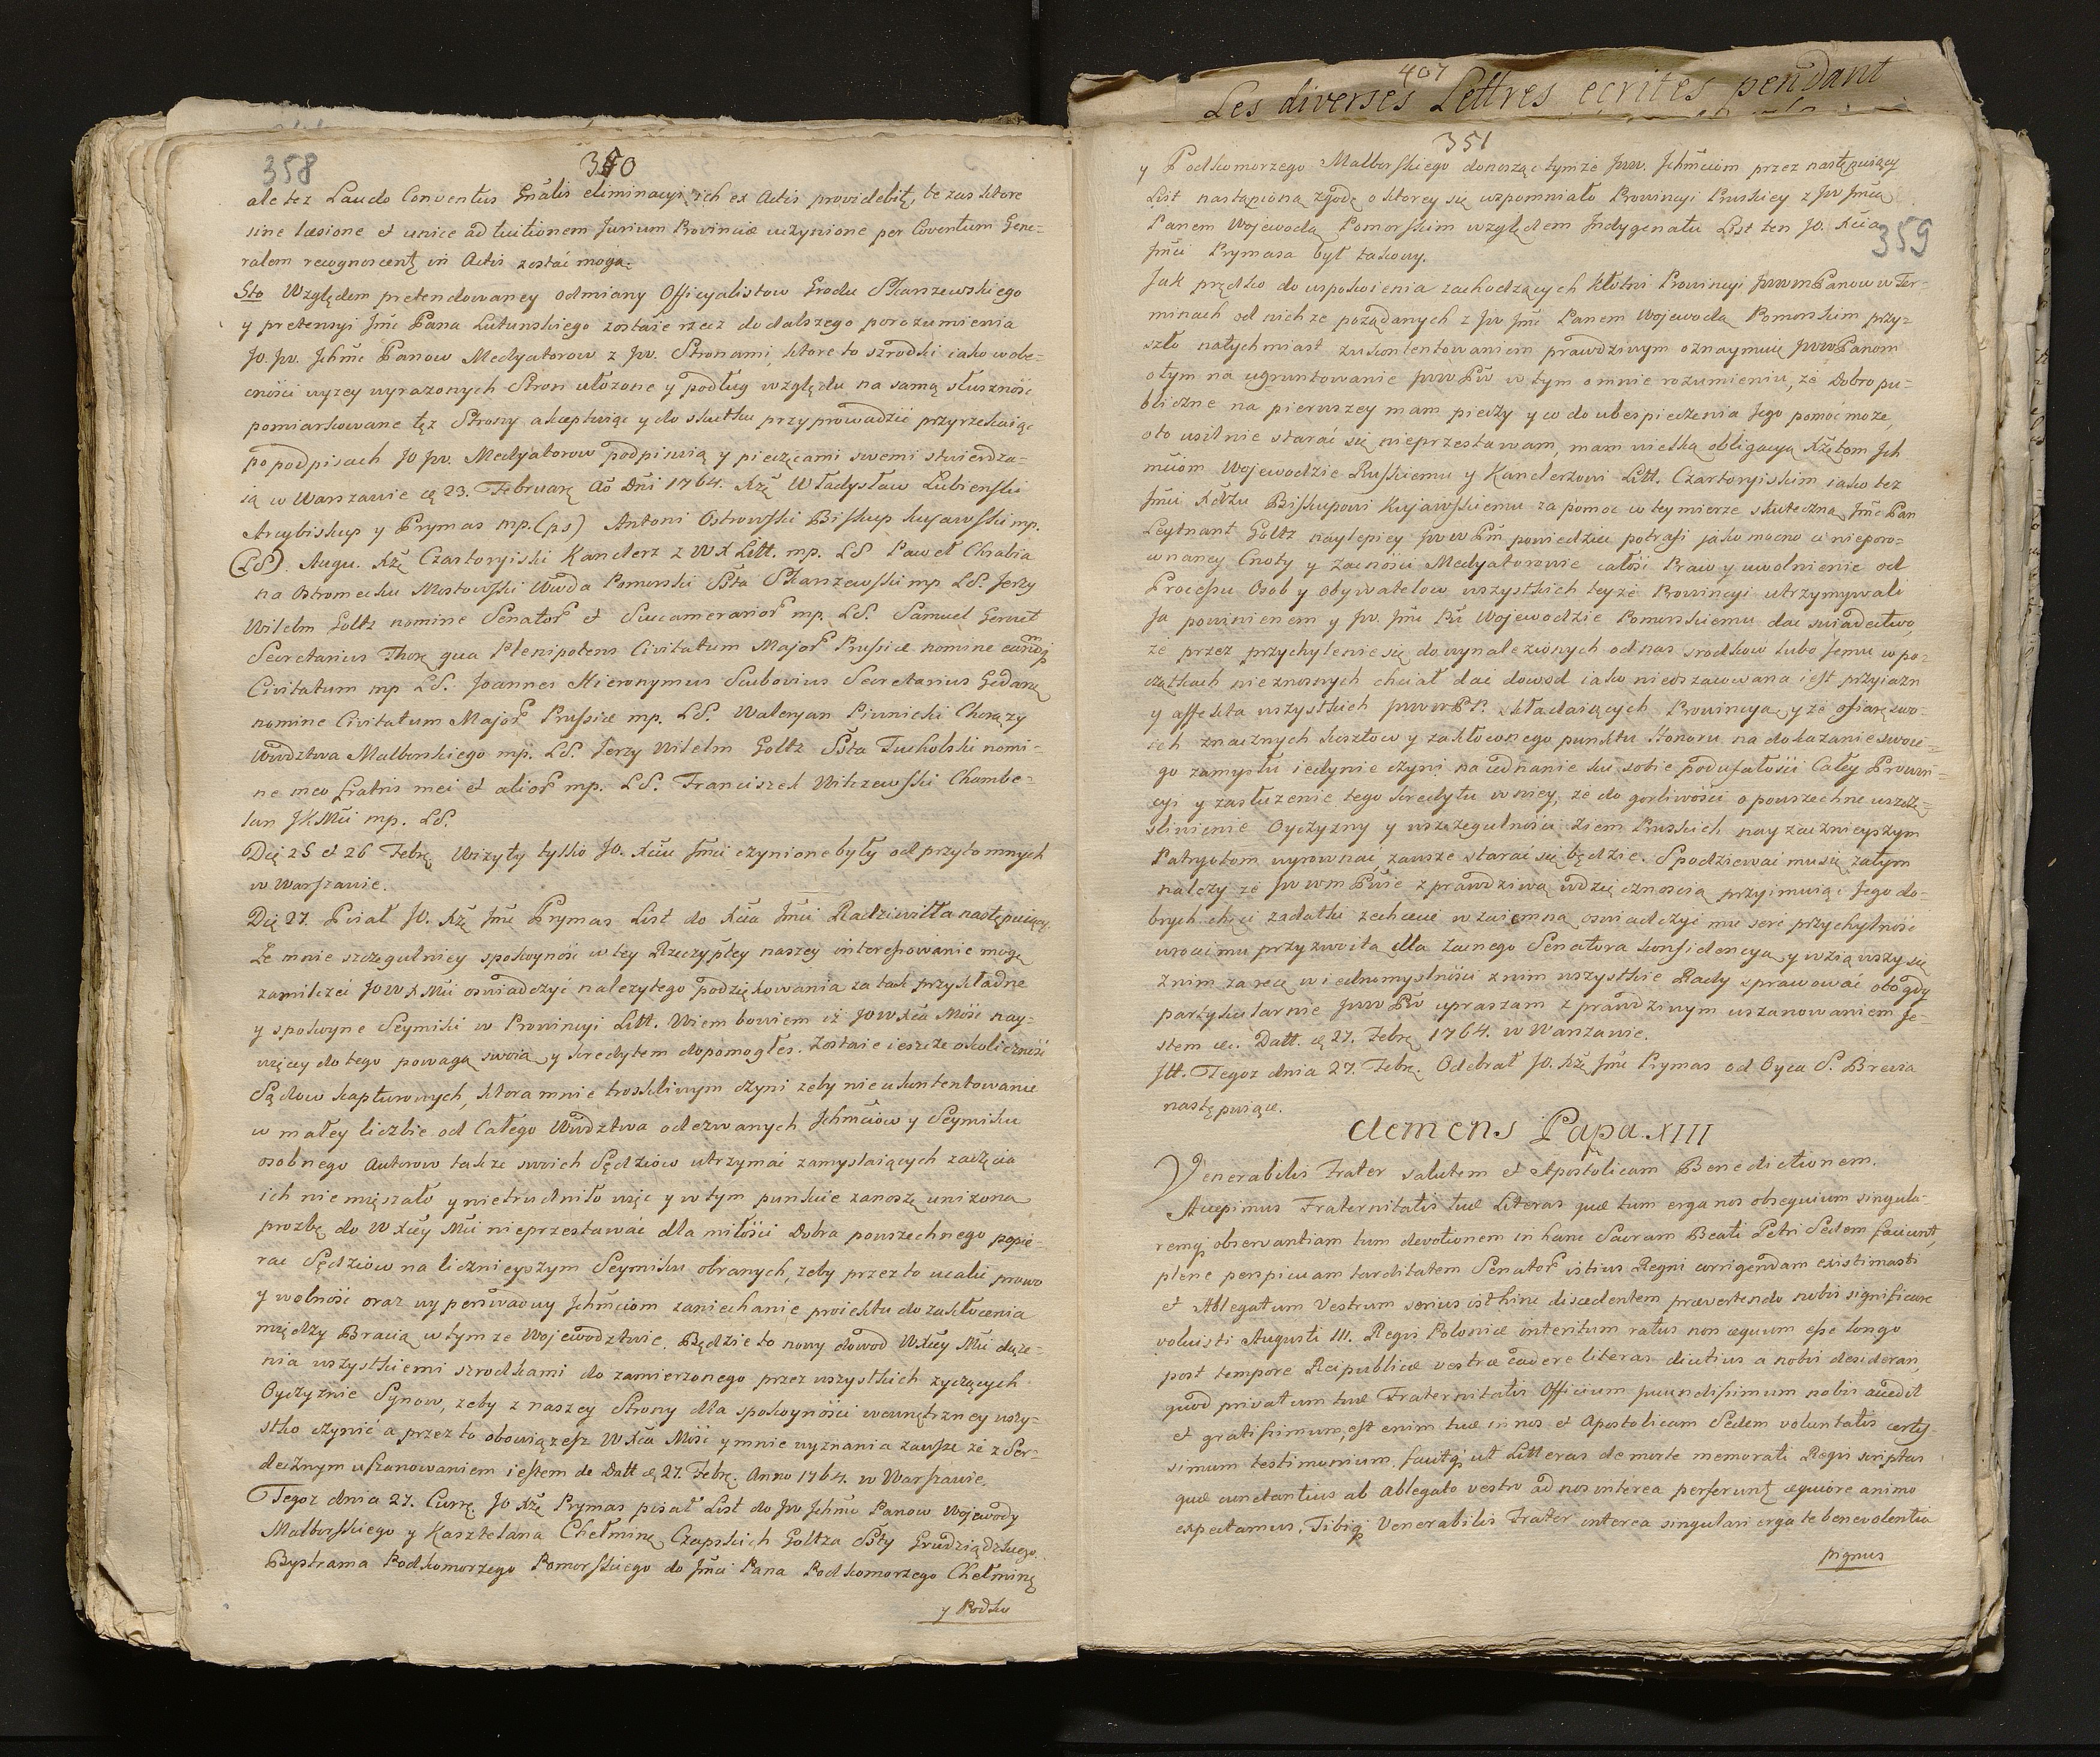 358
350
ale tez Laudo Conventus Gnalis eliminacyi ich ex Actis providebitę, te zas ktore
sine læsione et unice ad tuitionem Jurium Provinciæ uczynione per Coventum Gene-
ralem recognoscentę in Actis zostać mogą.
6to Względem pretendowaney odmiany Officyalistow Grodu Skarszewskiego
y pretensyi Jmć Pana Lutunskiego zostaie rzecz do dalszego porozumienia
JO. JW. Jchmć Panow Medyatorow z JW. Stronami, ktore to szrodki iako w obe-
cności wyzey wyrazonych Stron ułozone y podług względu na samą słusznosć
pomiarkowane też Strony akceptuiąc y do skutku przyprowadzić przyrzekaiąc
po podpisach JO JW. Medyatorow podpisuią y pieczęcami swemi stwierdza-
ią w Warszawie ę 23. Februarę Aō Dni 1764. Xżę Władysław Lubienski
Arcybiskup y Prymas mp. (ps) Antoni Ostrowski Biskup kujawski mp.
(LS). Augu. Xżę Czartoryiski Kanclerz z WX Litt. mp. LS Paweł Chrabia
na Ostromecku Mostowski Wwda Pomorski Stta Skarszewski mp. LS. Jerzy
Wilelm Goltz nomine Senator et Succamerarior mp. LS. Samuel Gerret
Secretarius Thorę qua Plenipotens Civitatum Major Prussiæ nomine earundq
Civitatum mp LS. Joannes Hieronymus Scubovius Secretarius Gedanę
nomine Civitatum Major Prussiæ mp. LS. Waleryan Piwnicki Chorązy
Wwdztwa Malborskiego mp. LS. Jerzy Wilelm Goltz Stta Tucholski nomi-
ne meo Fratris mei et alior mp. LS. Franciszek Wilczewski Chambe-
lan JKMci mp. LS.
Dię 25 et 26 Febrę. Wizyty tylko JO. Xciu Jmci czynione były od przytomnych
w Warszawie.
Dię 27. Pisał JO. Xżę Jmć Prymas List do Xcia Jmci Radziwiłła następuiący.
Ze mnie szczegulniey spokoyność w tey Rzeczyptey naszey interessowanie mogę
zamilczeć JOWXMci oswiadczyć nalezytego podziękowania za tak przykładne
y spokoyne Seymiki w Prowincyi Litt. Wiem bowiem iż JOWXca Mość nay-
więcey do tego powagą swoią y kredytem dopomogłes. Zostaie ieszcze okoliczność
Sądow kapturowych, ktora mnie troskliwym czyni zeby nieukontentowanie
w małey liczbie od Całego Wwdztwa oderwanych Jchmciow y Seymiku
osobnego Autorow takze swoich Sędziow utrzymać zamyslaiących zaczęcia
ich nie mięszało y nie trudniło więc y w tym punkcie zanoszę unizoną
prozbę do WXcey Mci nieprzestawać dla miłości Dobra powszechnego popie-
rac Sędziow na licznieyszym Seymiku obranych, zeby przez to ucalić prawo
y wolność oraz wyperswaduy Jchmciom zaniechanie proiektu do zakłucenia
między Bracią w tym ze Wojewodztwie. Będzie to nowy dowod WXcey Mci dąże-
nia wszystkiemi szrodkami do zamierzonego przez wszystkich zyczących
Oyczyznie Synow, zeby z naszey Strony dla spokoyności wewnętrzney wszy-
stko czynić a przez to obowiązesz WXca Mość y mnie wyznania zawsze że z Ser-
decznym uszanowaniem iestem de Datt ę 27. Febrę. Anno 1764. w Warszawie.
Tegoz dnia 27. Currę. JO Xżę Prymas pisał List do JW Jchmć Panow Wojewody
Malborskiego y Kasztelana Chełminę Czapskich Goltza Stty Grudziądzkiego
Bystrama Podkomorzego Pomorskiego do Jmci Pana Podkomorzego Chełminę
y Podko
407
Les diverses Lettres ecrites pendant
351
359
y Podkomorzego Malborskiego donosząc tymże JWW. Jchmciom przez następuiący
List nastąpioną zgodę o ktorey się wspomniało Prowincyi Pruskiey z JW Jmcią
Panem Wojewodą Pomorskim względem Indygenatu List ten JO. Xcia
Jmci Prymasa był takowy.
Jak prędko do uspokoienia zachodzących kłotni Prowincyi JWWmPanow w Ter-
minach od nich że pożądanych z JW Jmć Panem Wojewodą Pomorskim przy-
szło natychmiast z ukontentowaniem prawdziwym oznaymuię JWWPanom
o tym na ugruntowanie JWWPw w tym o mnie rozumieniu, że Dobro pu-
bliczne na pierwszey mam pieczy y co do ubespieczenia Jego pomoc może,
o to usilnie starać się nieprzestawam, mam wielką obligacyą Xżętom Jch
mciom Wojewodzie Ruskiemu y Kanclerzowi Litt. Czartoryiskim iako tez
Jmci Xdzu Biskupowi Kujawskiemu za pomoc w tey mierze skuteczną Jmć Pan
Leytnant Goltz naylepiey JWWPm powiedziec potrafi jako mocno a nieporo-
wnaney Cnoty y Zacności Medyatorowie całość Praw y uwolnienie od
Processu Osob y Obywatelow wszystkich teyże Prowincyi utrzymywali
Ja powinienem y JW. Jmć Pu Wojewodzie Pomorskiemu dac swiadectwo,
że przez przychylenie się do wynalezionych od nas srodkow lubo Jemu w po-
czątkach nieznosnych chciał dac dowod iako nieoszacowana iest przyiazn
y affekta wszystkich JWWPP. składaiących Prowincyą y że ofiarę swo-
ich znacznych kosztow y zakłownego punktu Honoru na dokazanie swoie-
go zamysłu iedynie czyni na iednanie ku sobie podufałości Całey Prowin-
cyi y zasłuzenie tego kredytu w niey, że do gorliwości o powszechne uszczę-
sliwienie Oyczyzny y wszczegulności Ziem Pruskich nayzacznieyszym
Patryotom wyrownać zawsze starać się będzie. Spodziewać mu się zatym
nalezy że JWWmPwie z prawdziwą wdzięcznoscią przyimuiąc Jego do-
brych chęci zadatki zechcecie wzaiemną oswiadczyć mu serc przychylność
wrocimu przyzwoita dla Zacnego Senatora konfidencyą y wziąwszy się
z nim za ręce w iednomyslności z nim wszystkie Rady sprawować oto gdy
partykularnie JWWPw upraszam z prawdziwym uszanowaniem Je-
stem etc. Datt. ę 27. Febrę 1764. w Warszawie.
Itt. Tegoz dnia 27. Febrę. Odebrał JO. Xżę Jmć Prymas od Oyca S. Brevia
następuiące.
Clemens Papa XIII
Venerabilis Frater salutem et Apostolicam Benedictionem.
Accepimus Fraternitatis tuæ Literas quæ tum erga nos obsequium singula-
remq observantiam tum devotionem in hanc Sacram Beati Petri Sedem faciunt,
plene perspicuam tarditatem Senator istius Regni corrigendam existimasti
et Ablegatum Vestrum serius isthinc discedentem prævertendo nobis significare
voluisti Augusti III. Regis Poloniæ interitum ratus non æquum esse longo
post tempore Reipublicæ vestræ eadere literas diutius a nobis desiderari,
quod privatum tuæ Fraternitatis Officium jucundissimum nobis accedit
et gratissimum, est enim tuæ in nos et Apostolicam Sedem voluntatis certis-
simum testimonium, facitq ut Litteras de morte memorati Regis scriptas
quæ cunctantius ab ablegato vestro ad nos interea perferuntę æquiore animo
expectamus, Tibiq Venerabilis Frater interea singulari erga te benevolentiæ
pignus